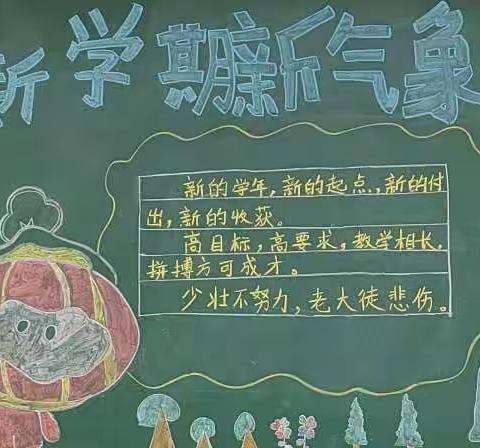 新学期新气象
新的学年,新的起点,新的付
出,新的收获。
高目标,高要求,教学相长,
拼搏方可成才。
少壮不努力,老大徒悲伤。